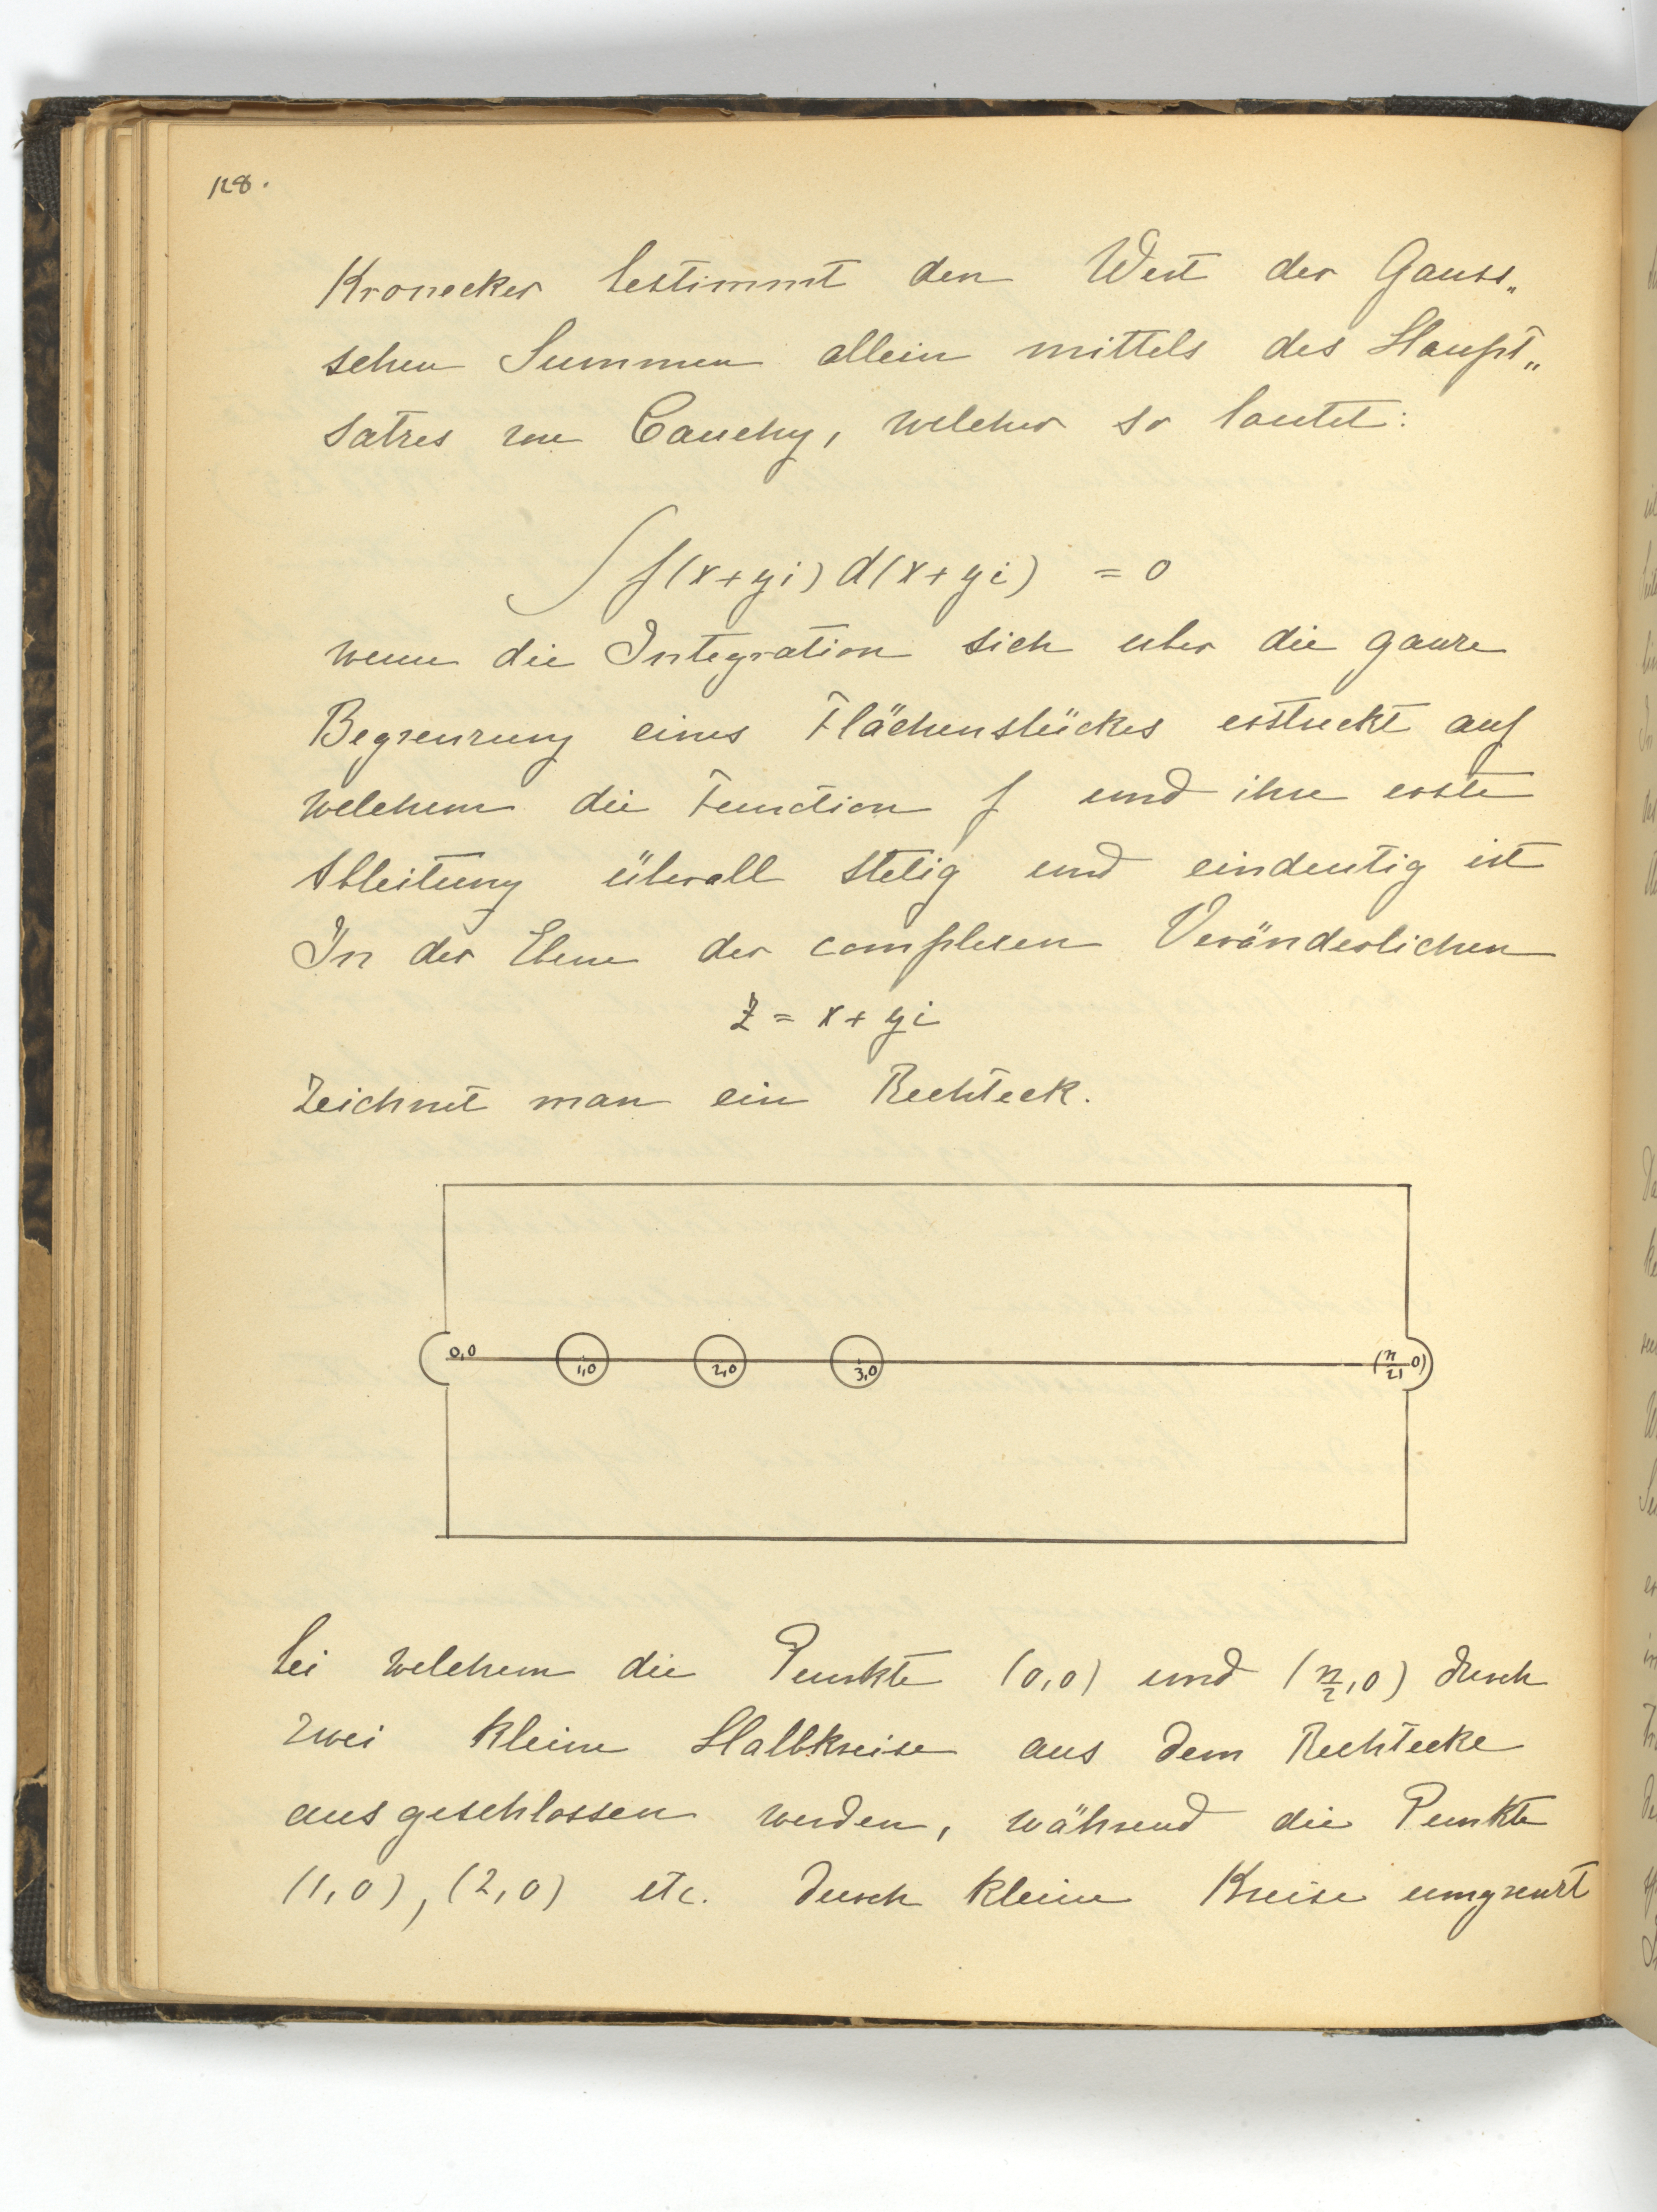 128.
Kronecker bestimmt den Wert der Gauss„
schen Summen allein mittels des Haupt„
satzes von Cauchy, welcher so lautet:
∫ f(x+yi) d(x+yi) = 0
wenn die Integration sich uber die ganze
Begrenzung eines Flächenstückes erstreckt auf
welchem die Function f und ihre erste
Ableitung überall stetig und eindeutig ist
In der Ebene der complexen Veränderlichen
z = x + yi
zeichnet man ein Rechteck.
0,0 1,0 2,0 3,0 (n/2, 0)
bei welchem die Punkte (0,0) und (n/2, 0) durch
zwei kleine Halbkreise aus dem Rechtecke
ausgeschlossen werden, während die Punkte
(1,0), (2,0) etc. durch kleine Kreise umgrenzt